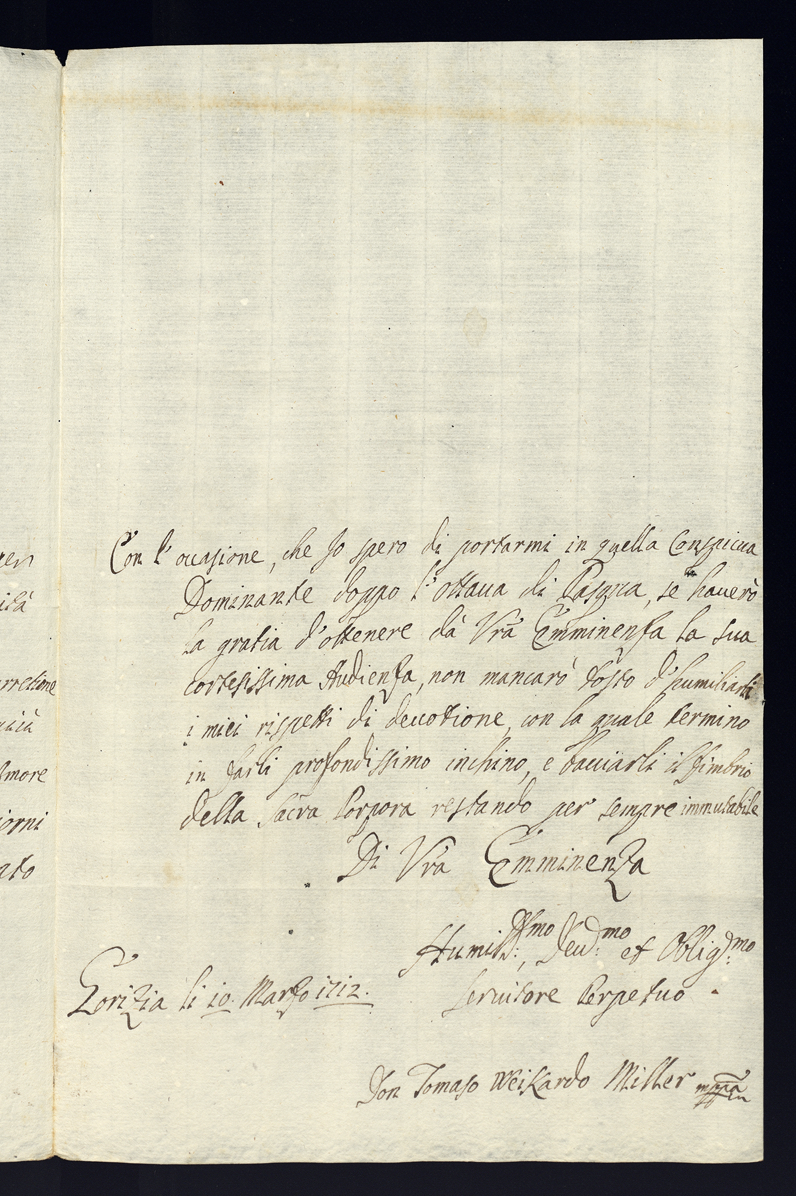 ven
ità
rretione
uità
Amore
iorni
ato
Con l'occasione, che Jo spero di portarmi in quella Conspicua
Dominante doppo l'ottava di Pasqua, se haverò
la gratia d'ottenere dà Vrã Emminenza la sua
cortesissima Audienza, non mancarò tosto d'humiliarli
i miei rispetti di devotione, con la quale termino
in farli profondissimo inchino, e bacciarli il fimbrio
della Sacra Porpora restando per sempre immutabile
Di Vrã Emminenza
Humiliss:mo, Deud:mo et Oblig:mo
Servitore Perpetuo
Gorizia li 10. Marzo 1712.
Don Tomaso Weikardo Miller mppa